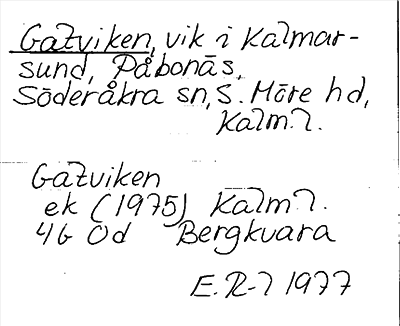 Gatviken, vik i Kalmar-
sund, Påbonäs,
Söderåkra sn, S. Möre hd,
Kalm. l.
Gatviken
ek (1975) Kalm l.
4G 0d Bergkvara
E. R-l 1977